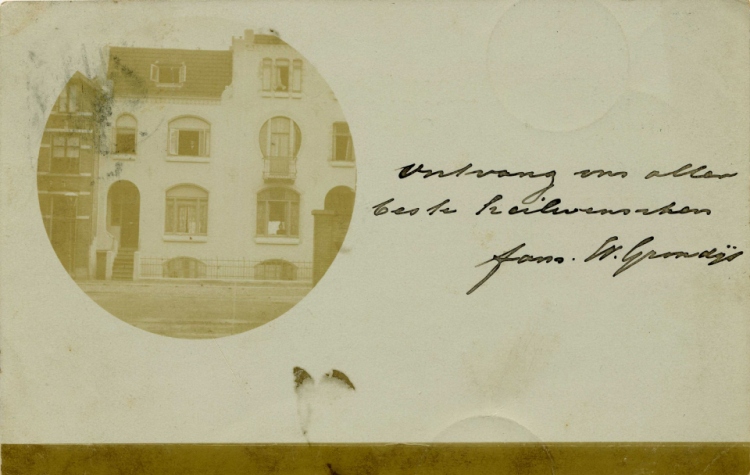 Ontvang ons aller
beste heilwenschen
fam. W. Grondijs